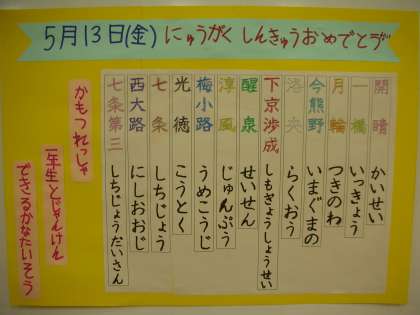 5月13日(金) にゅうがく しんきゅうおめでとう
開晴 かいせい
一橋 いっきょう
月輪 つきのわ
今熊野 いまぐまの
洛央 らくおう
下京渉成 しもぎょうしょうせい
醒泉 せいせん
淳風 じゅんぷう
梅小路 うめこうじ
光徳 こうとく
七条 しちじょう
西大路 にしおおじ
七条第三 しちじょうだいさん
かもつれっしゃ
一年生とじゃんけん
できるかなたいそう